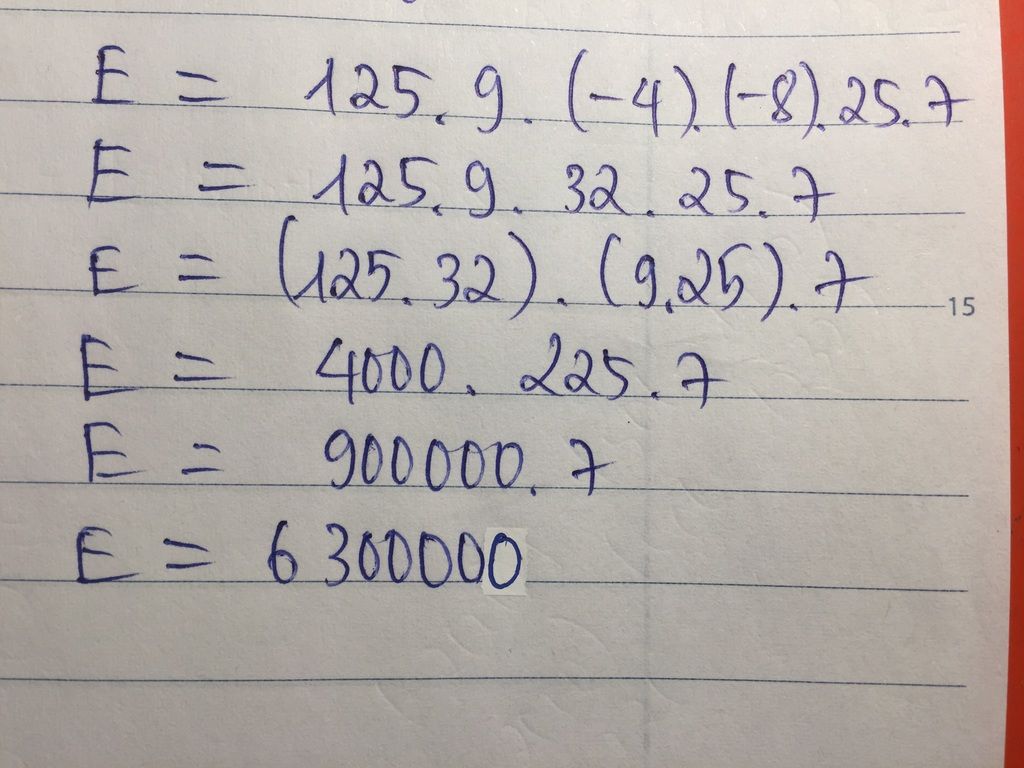 E = 125.9.(-4).(-8).25.7
E = 125.9.32.25.7
E = (125.32).(9.25).7
15
E = 4000.225.7
E = 900000.7
E = 6300000